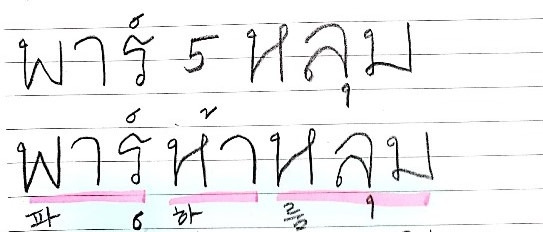 พาร์ 5 หลุม
พาร์ห้าหลุม
파 6 하